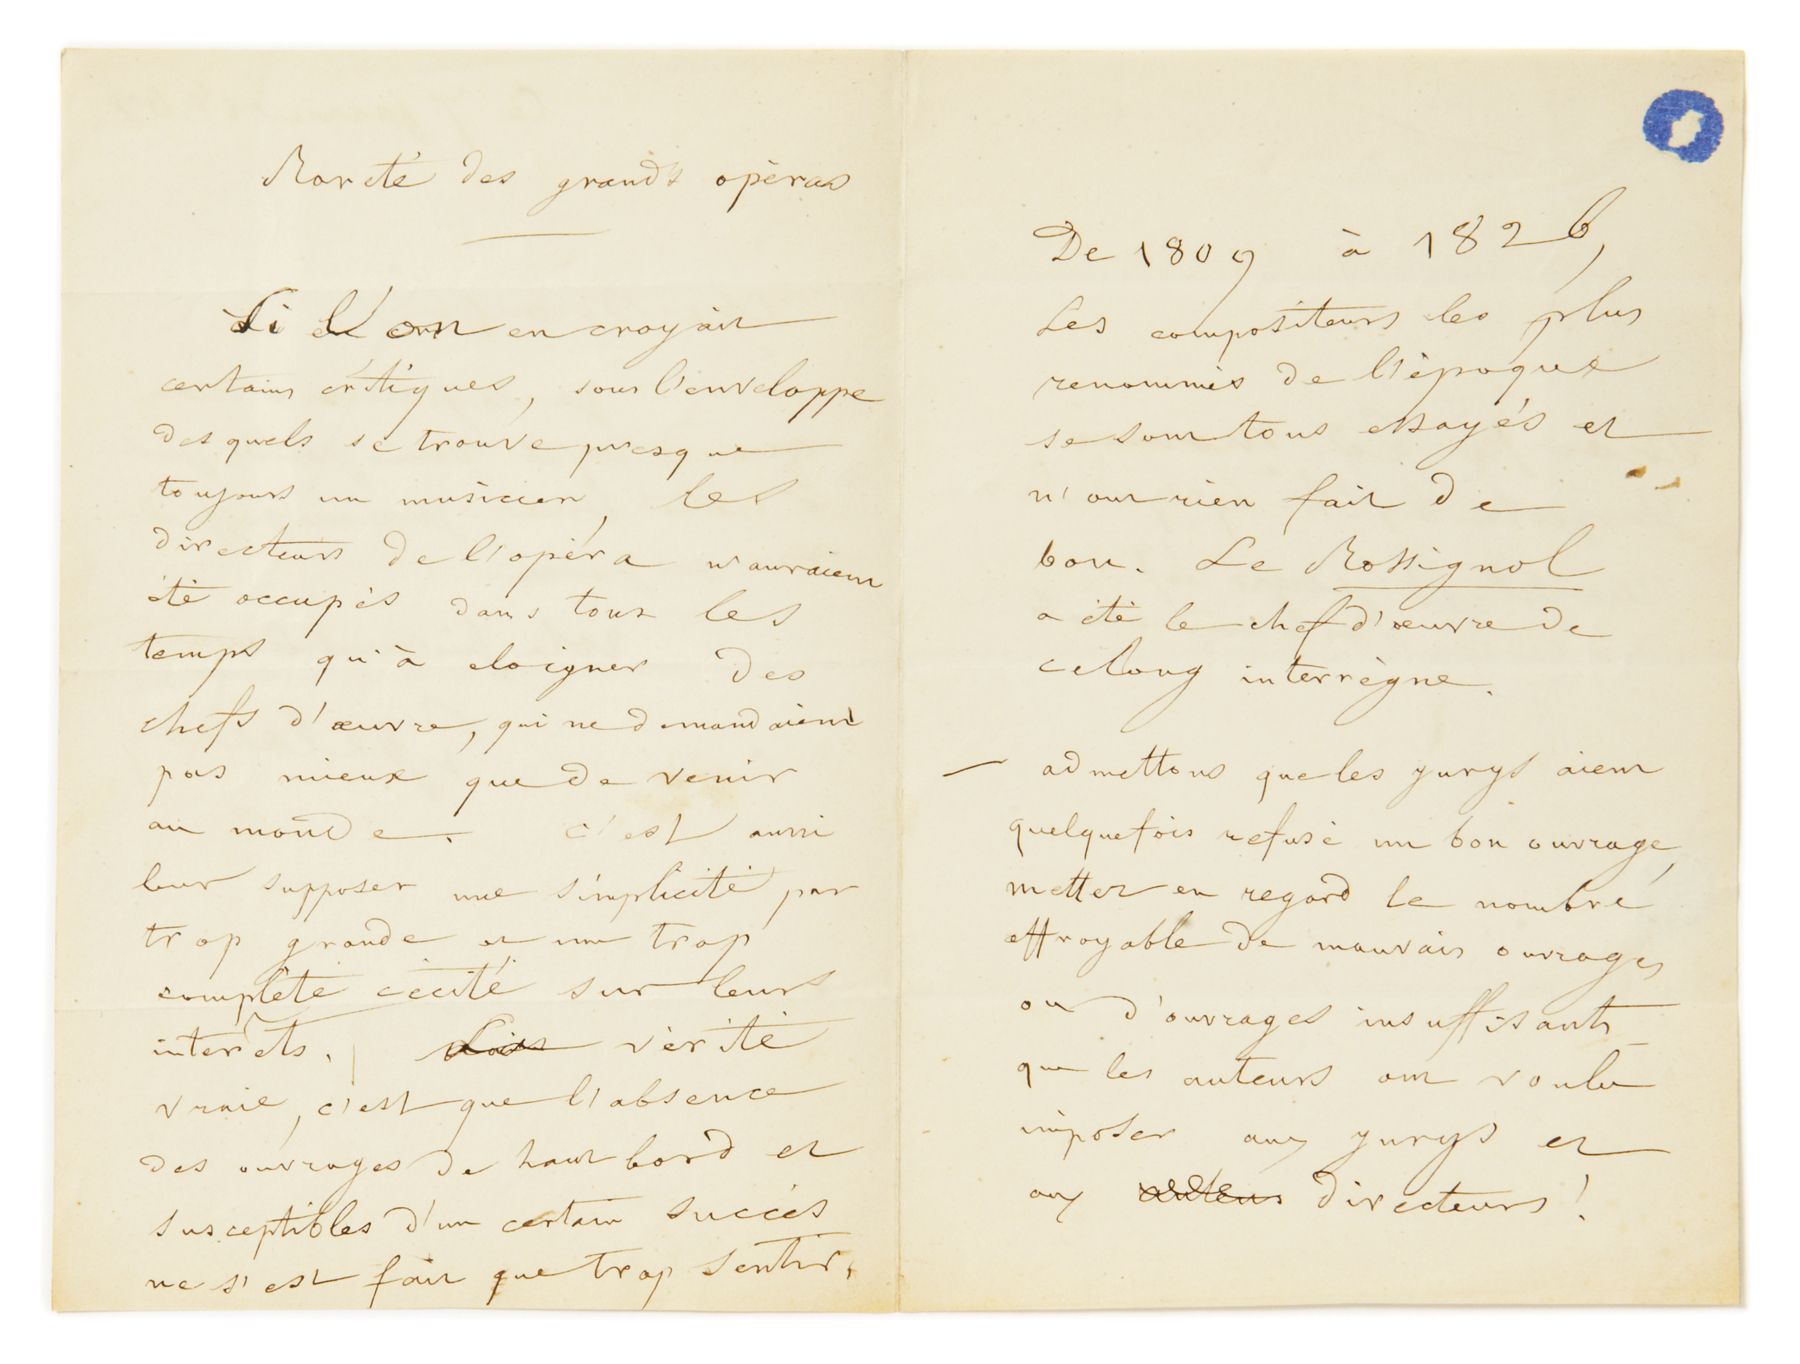 Rareté des grands opéras
Si l'on en croyait
certains critiques, sous l'enveloppe
desquels se trouve presque
toujours un musicien, les
directeurs de l'opéra n'auraient
été occupés dans tous les
temps qu'à eloigner des
chefs d'œuvre, qui ne demandaient
pas mieux que de venir
au monde. c'est aussi
leur supposer une simplicité par
trop grande et une trop
complète cécité sur leurs
intérêts. vérité
vraie, c'est que l'absence
des ouvrages de haut bord et
susceptibles d'un certain succès
ne s'est fait que trop sentir.
De 1809 à 1826,
Les compositeurs les plus
renommés de l'époque
se sont tous essayés et
n'ont rien fait de
bon. Le Rossignol
a été le chef d'œuvre de
ce long interrègne.
— admettons que les jurys aient
quelquefois refusé un bon ouvrage,
mettez en regard le nombre
effroyable de mauvais ouvrages
ou d'ouvrages insuffisants
que les auteurs ont voulu
imposer aux jurys et
aux auteurs directeurs !